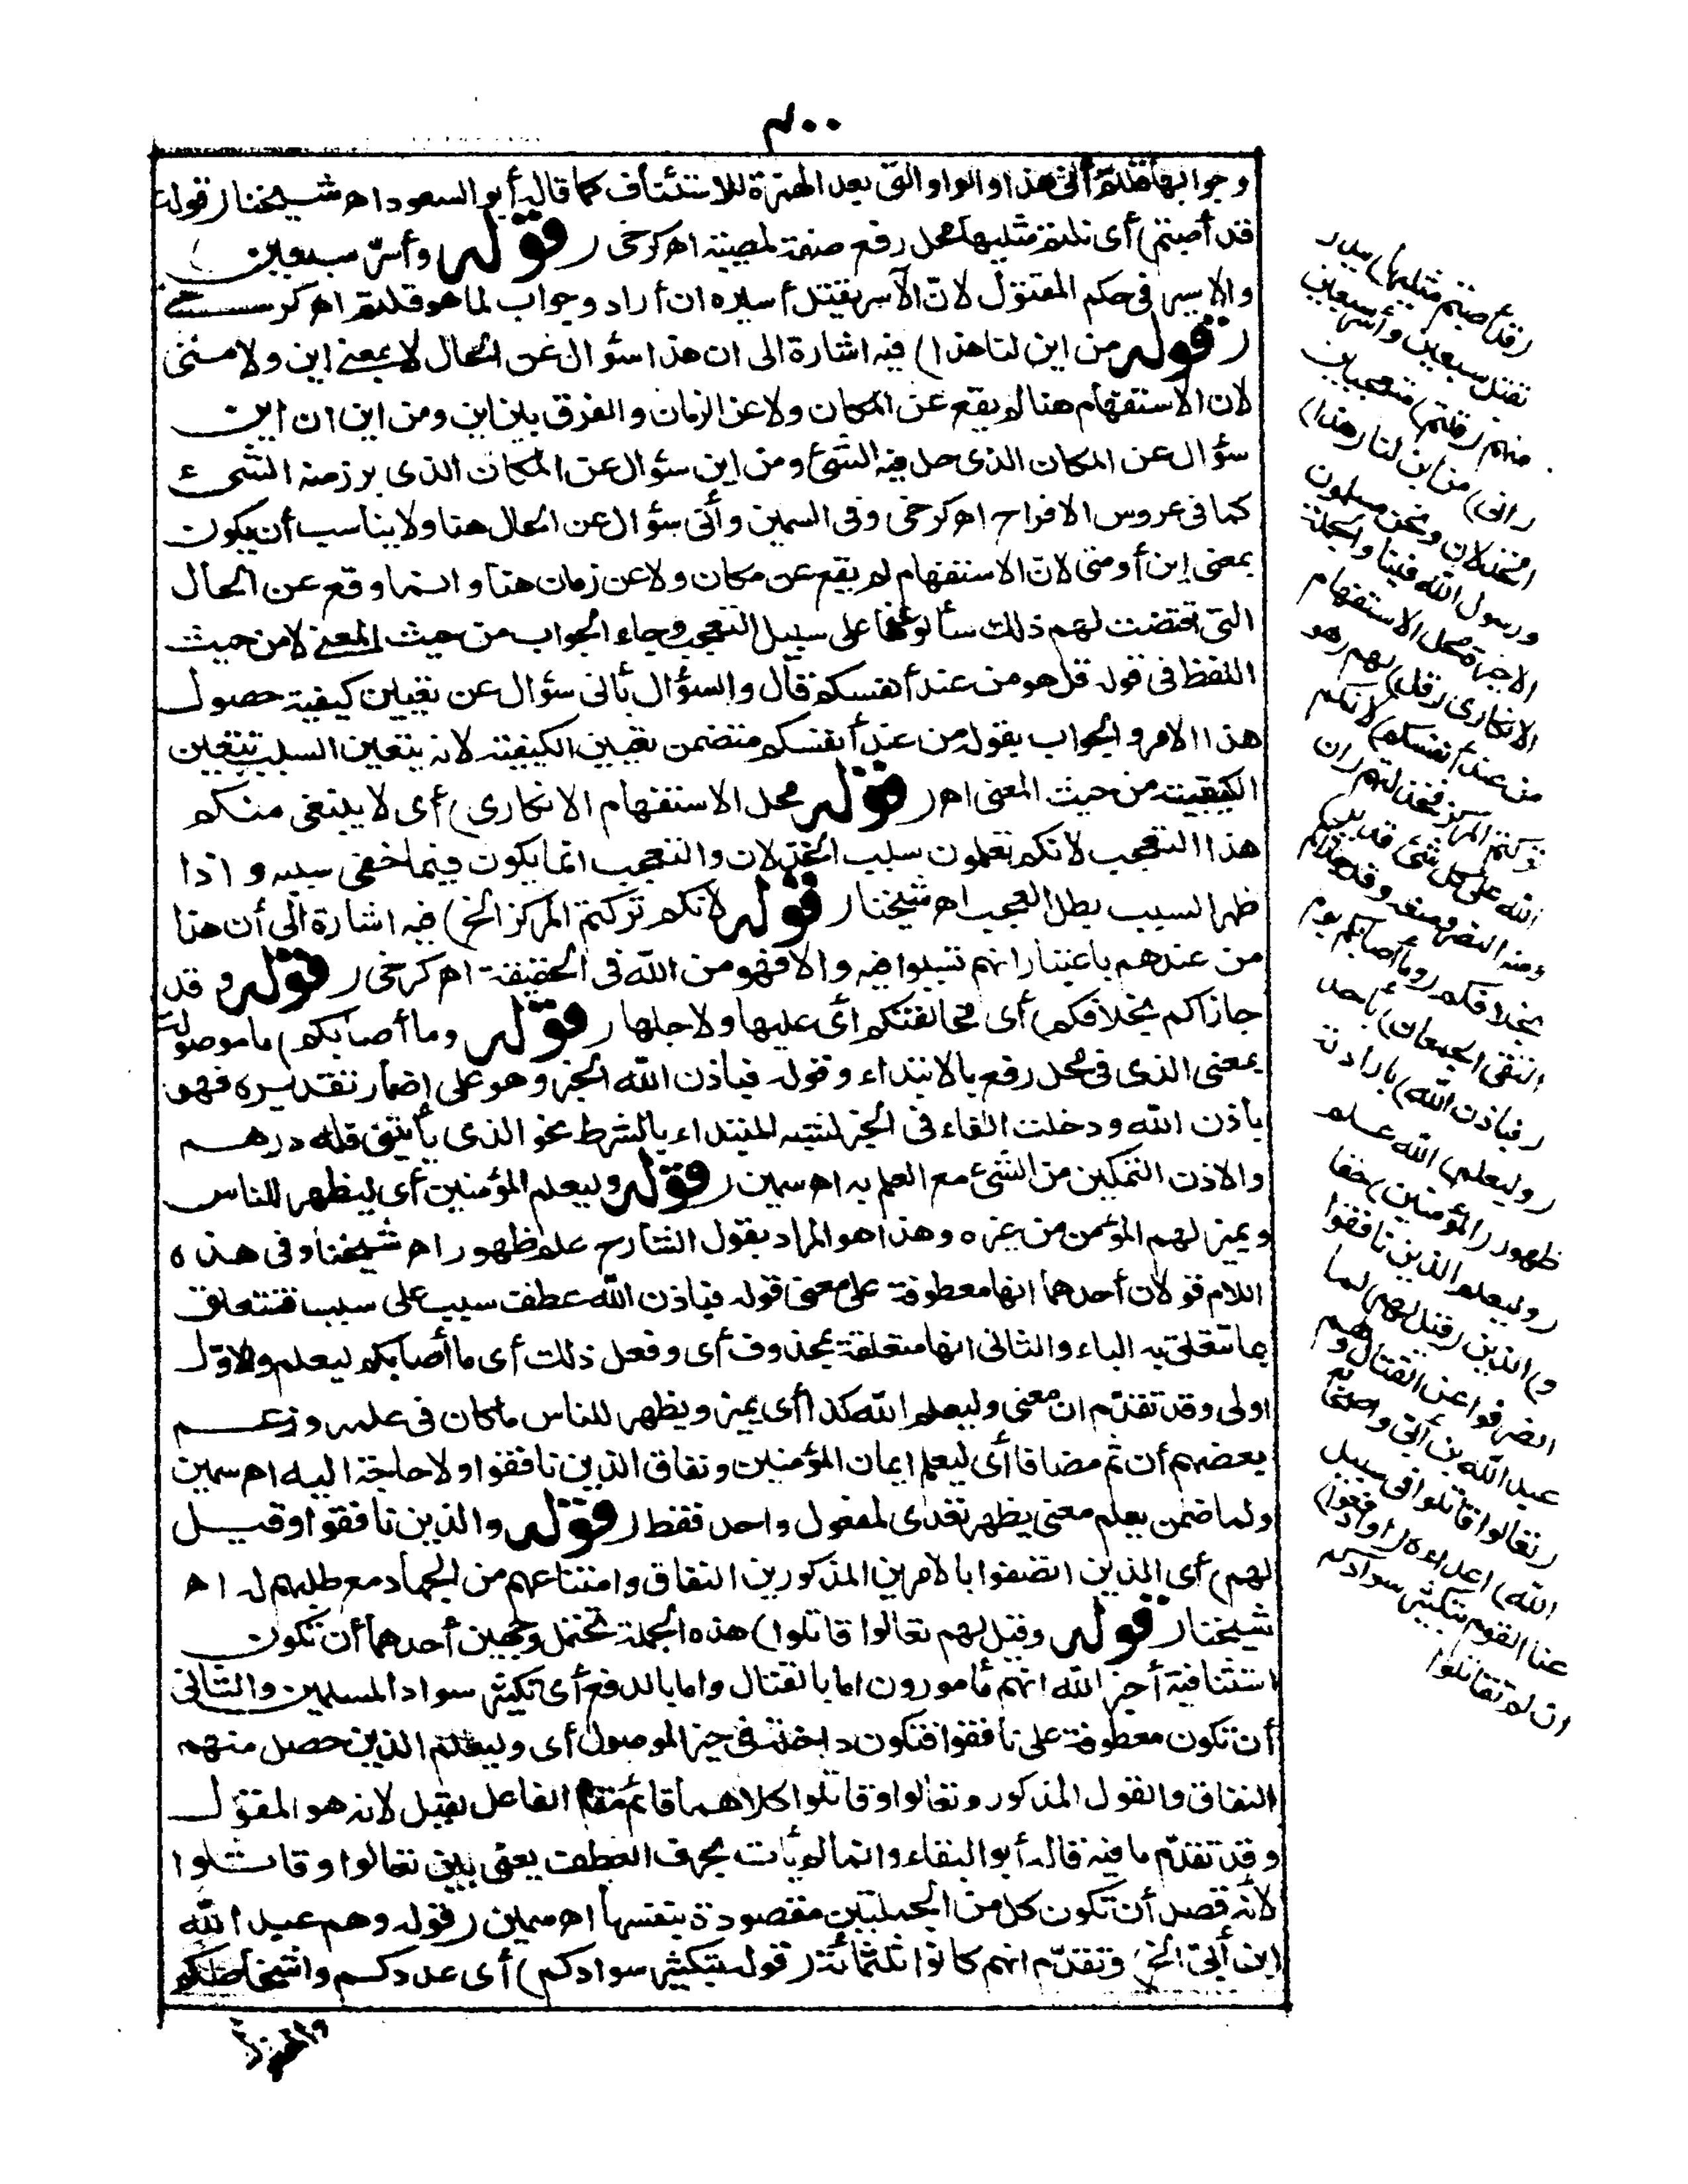 ٣٠٠
وجوابها قلتم أنى هذا والواو التى بعد الهمزة للاستئناف كما قاله أبو السعود اه شيخنا (قوله
قد أصبتم) أى نلتم مثليها محل رفع صفة لمصيبة اه كرخى (قوله وأسر سبعين)
والاسير فى حكم المقتول لان الآسر يقتل أسيره ان أراد وجواب لما هو قلتم اه كرخى
(قوله من اين لنا هذا) فيه اشارة الى ان هذا سؤال عن الحال لا بمعنى اين ولا متى
لان الاستفهام هنا لم يقع عن المكان ولا عن الزمان والفرق بين اين ومن اين ان اين
سؤال عن المكان الذى حل فيه الشئ ومن اين سؤال عن المكان الذى برز منه الشئ
كما فى عروس الافراح اه كرخى وفى السمين وأنى سؤال عن الحال هنا ولا يناسب أن يكون
بمعنى اين أو متى لان الاستفهام لم يقع عن مكان ولا عن زمان هنا وانما وقع عن الحال
التى اقتضت لهم ذلك سألوا عنها على سبيل التعجب وجاء الجواب من حيث المعنى لا من حيث
اللفظ فى قوله قل هو من عند أنفسكم قال والسؤال بأنى سؤال عن تعيين كيفية حصول
هذا الامر والجواب بقوله من عند أنفسكم متضمن تعيين الكيفية لانه بتعين السبب تتعين
الكيفية من حيث المعنى اه (قوله محل الاستفهام الانكارى) أى لا ينبغى منكم
هذا التعجب لانكم تعلمون سبب الخذلان والتعجب انما يكون فيما خفى سببه واذا
ظهر السبب بطل العجب اه شيخنا (قوله لانكم تركتم المركز الخ) فيه اشارة الى أن هذا
من عندهم باعتبار انهم تسببوا فيه والا فهو من الله فى الحقيقة اه كرخى (قوله وقد
جازاكم بخلافكم) أى مخالفتكم أى عليها ولاجلها (قوله وما أصابكم) ما موصولة
بمعنى الذى فى محل رفع بالابتداء وقوله فباذن الله الخبر وهو على اضمار تقديره فهو
بأذن الله ودخلت الفاء فى الخبر لشبه المبتداء بالشرط نحو الذى يأتينى فله درهم
والاذن التمكين من الشئ مع العلم به اه سمين (قوله وليعلم المؤمنين أى ليظهر للناس
ويميز لهم المؤمن من غيره وهذا هو المراد بقول الشارح علم ظهور اه شيخنا وفى هذه
اللام قولان أحدهما انها معطوفة على معنى قوله فباذن الله عطف سبب على سبب فتتعلق
بما تتعلق به الباء والثانى انها متعلقة بمحذوف أى وفعل ذلك أى ما أصابكم ليعلم والاول
اولى وقد تقدم ان معنى وليعلم الله كذا أى يميز ويظهر للناس ما كان فى علمه وزعم
بعضهم أن ثم مضافا أى ليعلم ايمان المؤمنين ونفاق الذين نافقوا ولا حاجة اليه اه سمين
ولما ضمن يعلم معنى يظهر تعدى لمفعول واحد فقط (قوله والذين نافقوا وقيل
لهم) أى الذين اتصفوا بالامرين المذكورين النفاق وامتناعهم من الجهاد مع طلبهم له اه
شيخنا (قوله وقيل لهم تعالوا قاتلوا) هذه الجملة تحتمل وجهين أحدهما أن تكون
استئنافية أخبر الله انهم مأمورون اما بالقتال واما بالدفع أى تكثير سواد المسلمين والثانى
أن تكون معطوفة على نافقوا فتكون داخلة فى حيز الموصول أى وليعلم الذين حصل منهم
النفاق والقول المذكور وتعالوا وقاتلوا كلاهما قائم مقام الفاعل لقيل لانه هو المقول
وقد تقدم ما فيه قاله أبو البقاء وانما لم يأت بحرف العطف يعنى بين تعالوا وقاتلوا
لانه قصد أن تكون كل من الجملتين مقصودة بنفسها اه سمين (قوله وهم عبد الله
ابن أبى الخ) وتقدم انهم كانوا ثلثمائة (قوله بتكثير سوادكم) أى عددكم واشخاصكم
(قد أصبتم مثليها) ببدر
بقتل سبعين وأسر سبعين
منهم (قلتم) متعجبين
(أنى) من اين لنا (هذا)
الخذلان ونحن مسلمون
ورسول الله فينا والجملة
الاخيرة محل الاستفهام
الانكارى (قل) لهم (هو
من عند أنفسكم) لانكم
تركتم المركز فخذلتم (ان
الله على كل شئ قدير)
ومنه النصر ومنعه وقد جازاكم
بخلافكم (وما أصابكم يوم
التقى الجمعان) بأحد
(فباذن الله) بارادته
(وليعلم) الله علم
ظهور (المؤمنين) حقا
(وليعلم الذين نافقوا
و) الذين (قيل لهم) لما
انصرفوا عن القتال وهم
عبد الله بن أبى وأصحابه
(تعالوا قاتلوا فى سبيل
الله) اعداءه (او ادفعوا)
عنا القوم بتكثير سوادكم
ان لم تقاتلوا